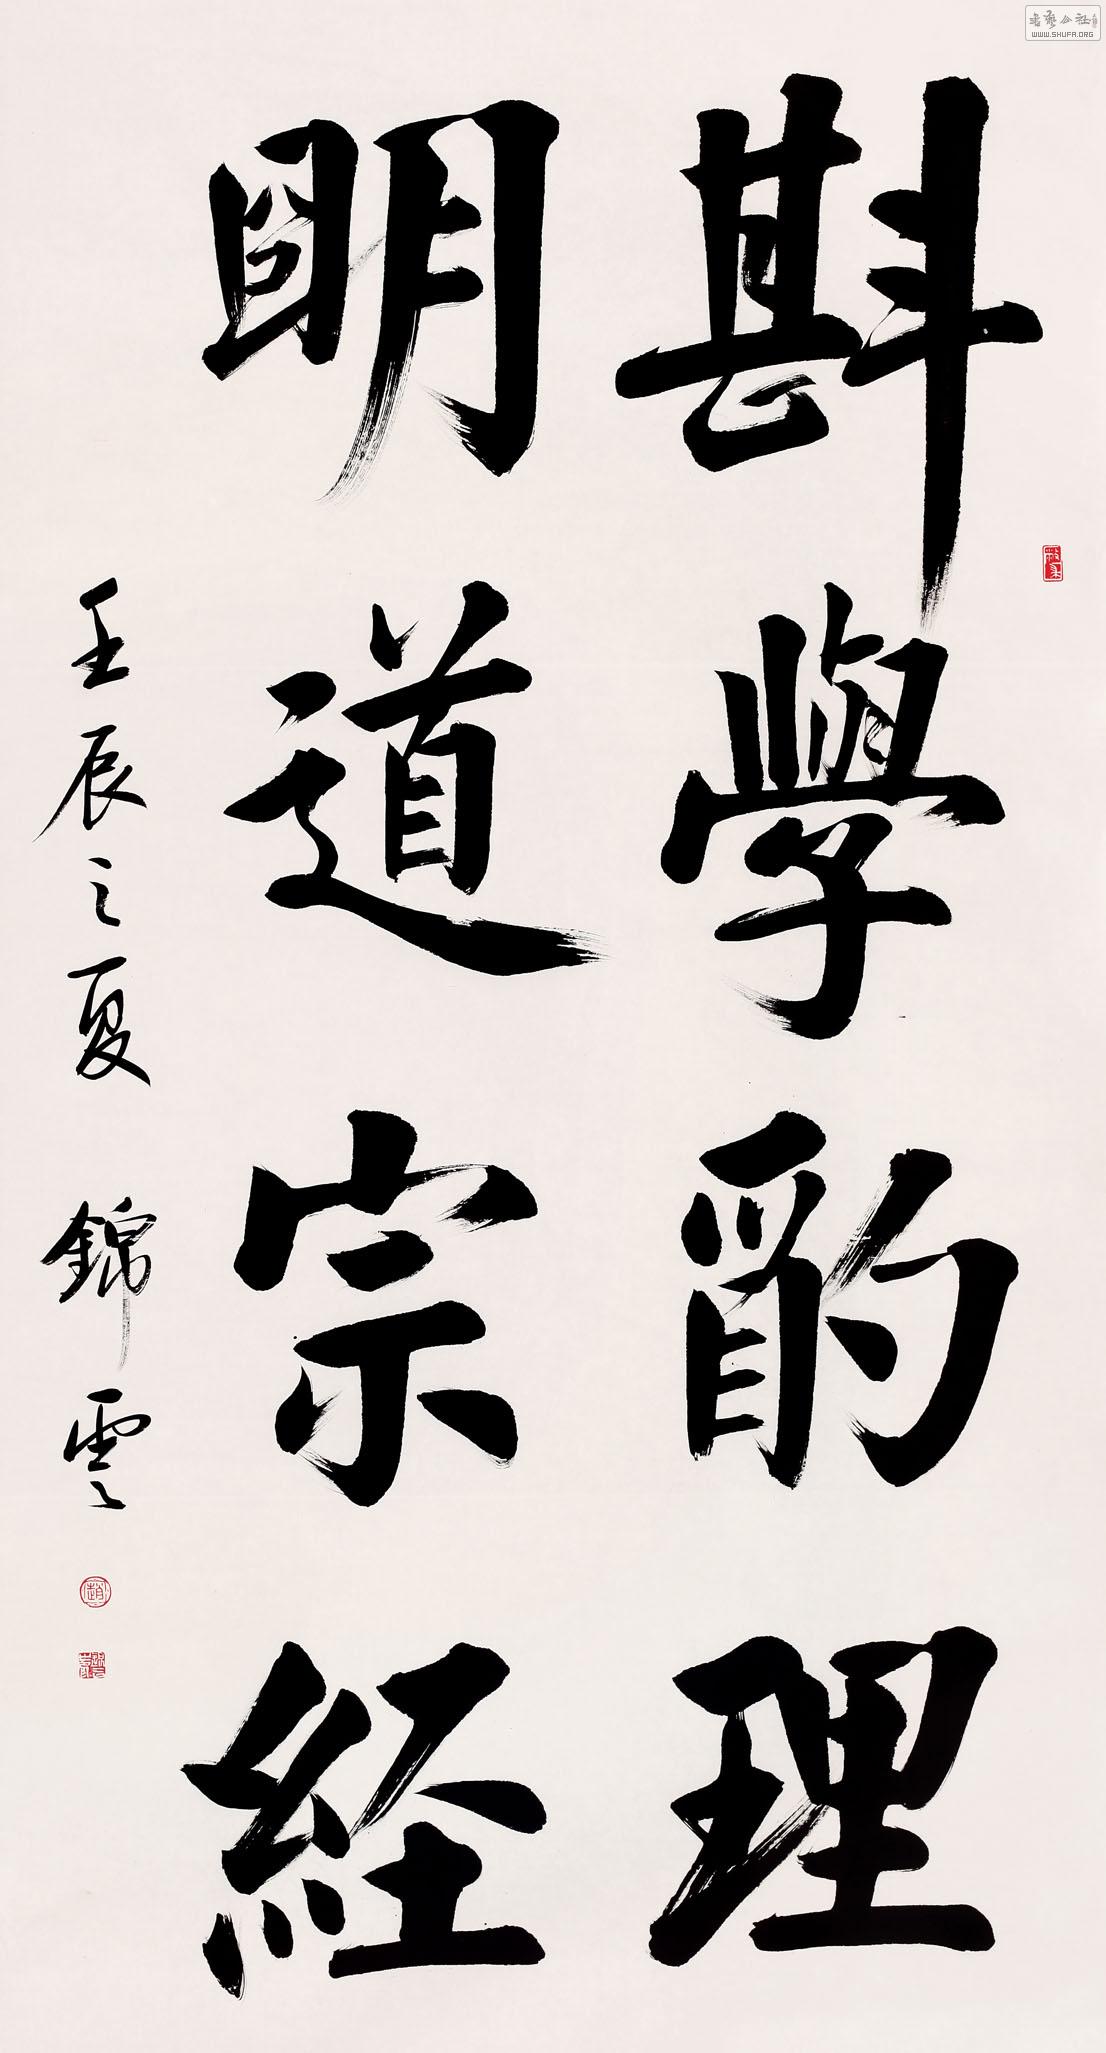 斟學酌理
明道宗经
壬辰之夏 錦雲
書藝公社
WWW.SHUFA.ORG